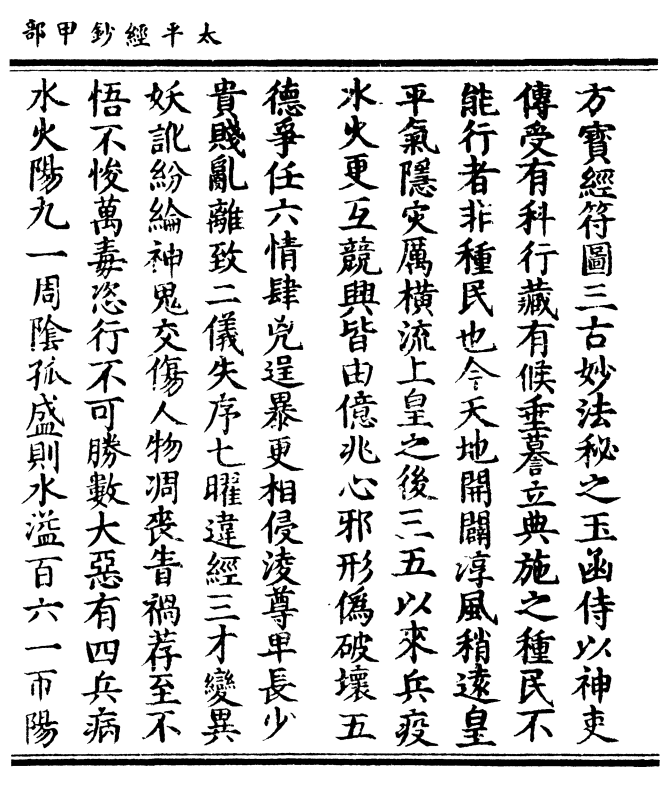 太平經鈔甲部
方寶經符圖三古妙法秘之玉函侍以神吏
傳受有科行藏有候垂謩立典施之種民不
能行者非種民也今天地開闢淳風稍遠皇
平氣隱灾厲橫流上皇之後三五以來兵疫
水火更互競興皆由億兆心邪形僞破壞五
德爭任六情肆兇逞暴更相侵淩尊卑長少
貴賤亂離致二儀失序七曜違經三才變異
妖訛紛綸神鬼交傷人物凋喪眚禍荐至不
悟不悛萬毒恣行不可勝數大惡有四兵病
水火陽九一周陰孤盛則水溢百六一帀陽